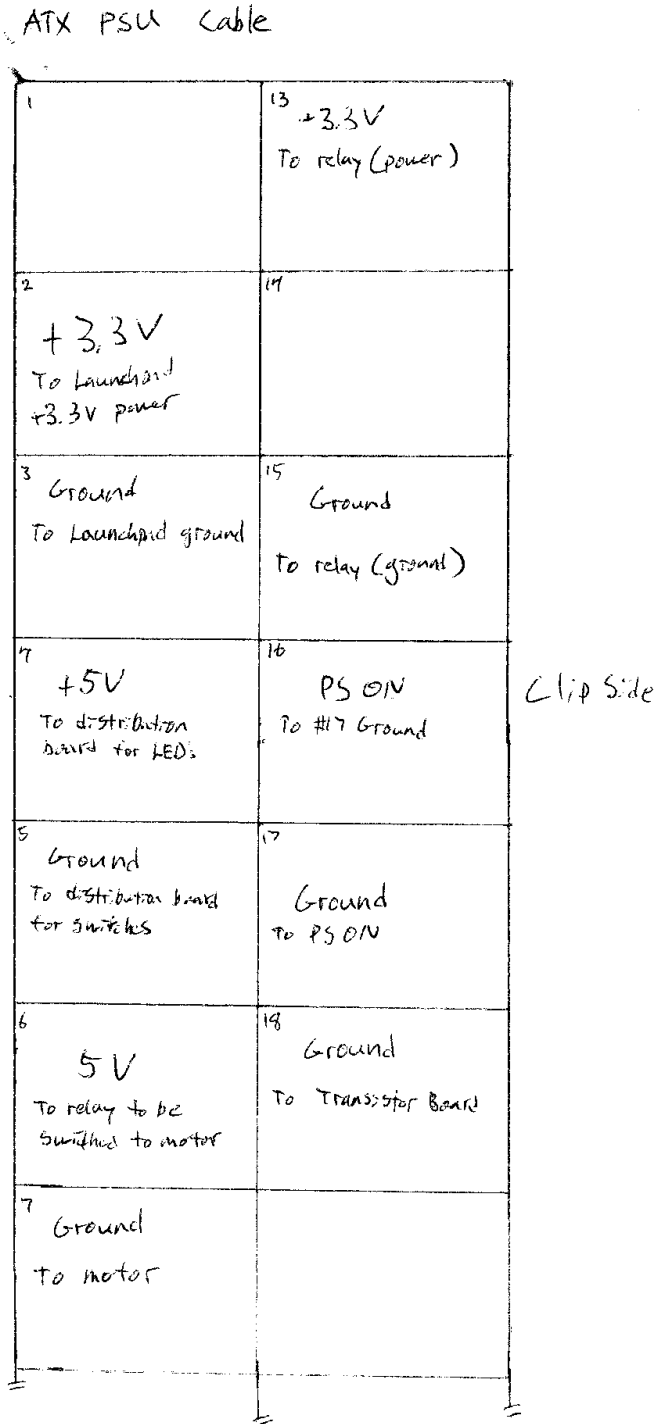 ATX PSU Cable
1
13
+3.3V
To relay (power)
2
+3.3V
To Launchpad
+3.3V power
14
3
Ground
To Launchpad ground
15
Ground
To relay (ground)
4
+5V
To distribution
board for LEDs
16
PS ON
To #17 Ground
Clip Side
5
Ground
To distribution board
for switches
17
Ground
To PS ON
6
5V
To relay to be
switched to motor
18
Ground
To Transistor Board
7
Ground
To motor